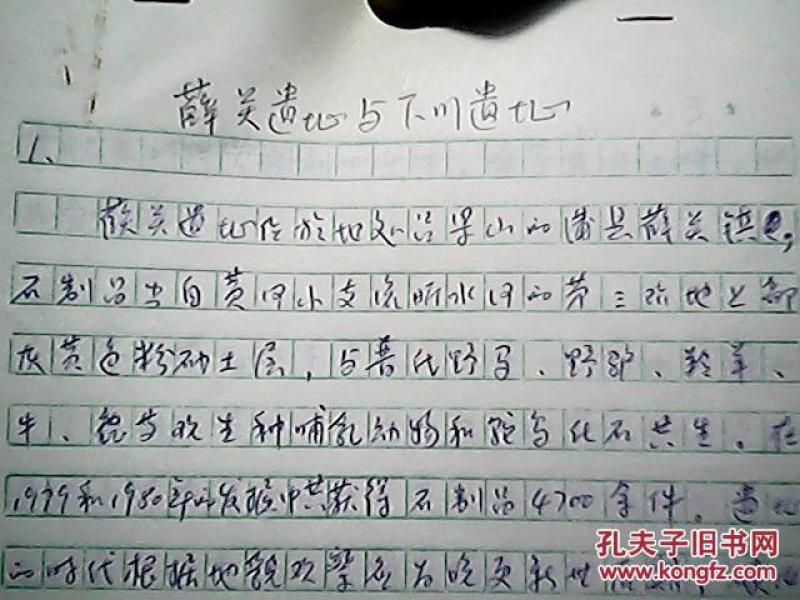 薛关遗址与下川遗址
1、
薛关遗址位於地处吕梁山的蒲县薛关镇,
石制品出自黄河小支流昕水河的第二阶地上部
灰黄色粉砂土层,与普氏野马、野驴、羚羊、
牛、鹿等现生种哺乳动物和鸵鸟化石共生。在
1979和1980年的发掘中共获得石制品4700余件。遗址
的时代根据地貌观察应为晚更新世
孔夫子旧书网
www.kongfz.com